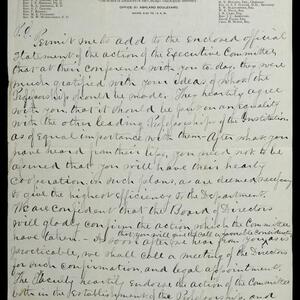 OFFICE 31 ASHLAND BOULEVARD.
P.S.
Permit me to add to the enclosed official
statement of the action of the Executive Committee,
that at their conference with you to day, they were
much gratified with your ideas of what the
Professorship should be made. They heartily agree
with you that it should be put on an equality
with the other leading Professorships of the Institution
as of equal importance with them— After what you
have heard from their lips, you need not to be
assured that you will have their hearty
cooperation in such plans, as are deemed necessary
to give the highest efficiency to the Department.
We are confident that the Board of Directors
will gladly confirm the action which the Committee
have taken— As soon after we hear from you as is
practicable, we shall call a meeting of the Directors
for such confirmation, and legal appointment.
The Faculty heartily endorse the action of the Committee
both in the establishment of the Professorship, and